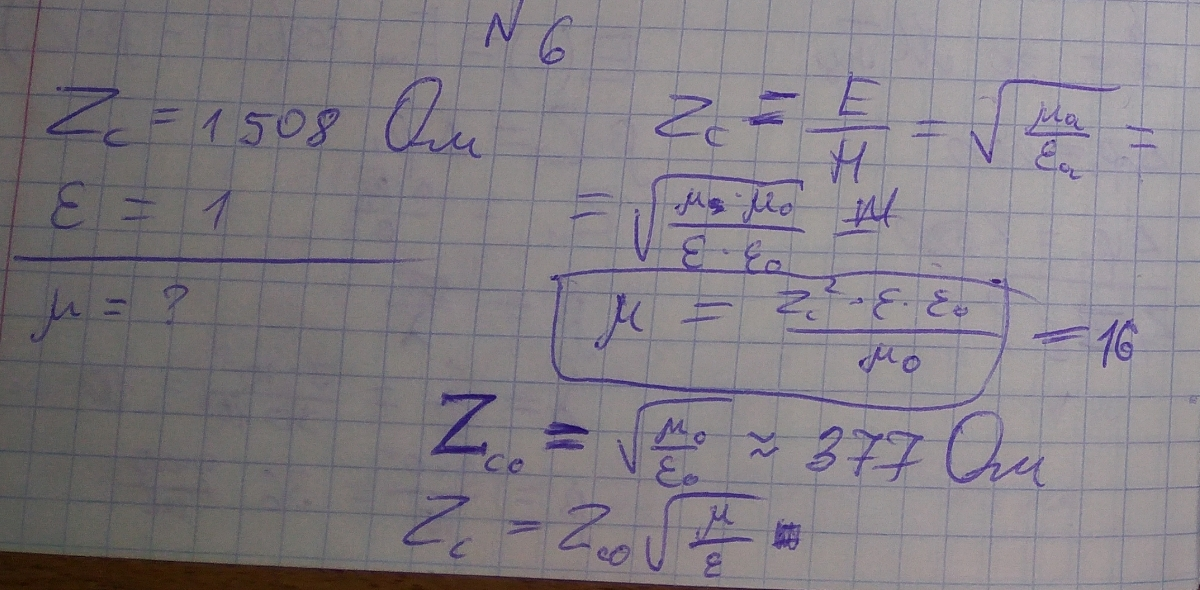 N 6
Zc = 1508 Ом
Zc = E/H = √(μa/εa) =
ε = 1
= √(μ·μ0/ε·ε0)
μ = ?
μ = Zc²·ε·ε0/μ0 = 16
Zco = √(μ0/ε0) ≈ 377 Ом
Zc = Zco √(μ/ε)